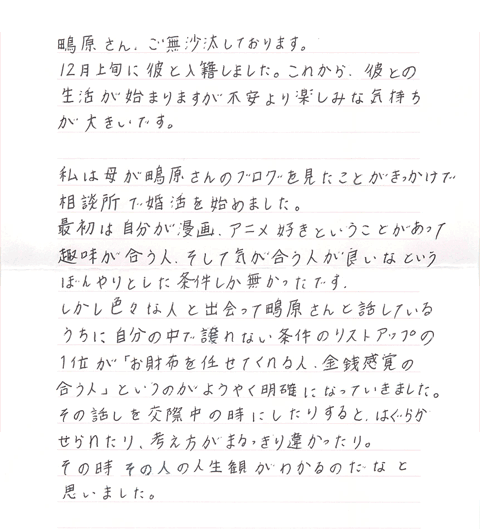 鴫原さん、ご無沙汰しております。
12月上旬に彼と入籍しました。これから、彼との
生活が始まりますが不安より楽しみな気持ち
が大きいです。
私は母が鴫原さんのブログを見たことがきっかけで
相談所で婚活を始めました。
最初は自分が漫画、アニメ好きということがあって
趣味が合う人、そして気が合う人が良いなという
ぼんやりとした条件しか無かったです。
しかし色々な人と出会って鴫原さんと話している
うちに自分の中で譲れない条件のリストアップの
1位が「お財布を任せてくれる人、金銭感覚の
合う人」というのがようやく明確になっていきました。
その話しを交際中の時にしたりすると、はぐらか
せられたり、考え方がまるっきり違かったり。
その時その人の人生観がわかるのだなと
思いました。